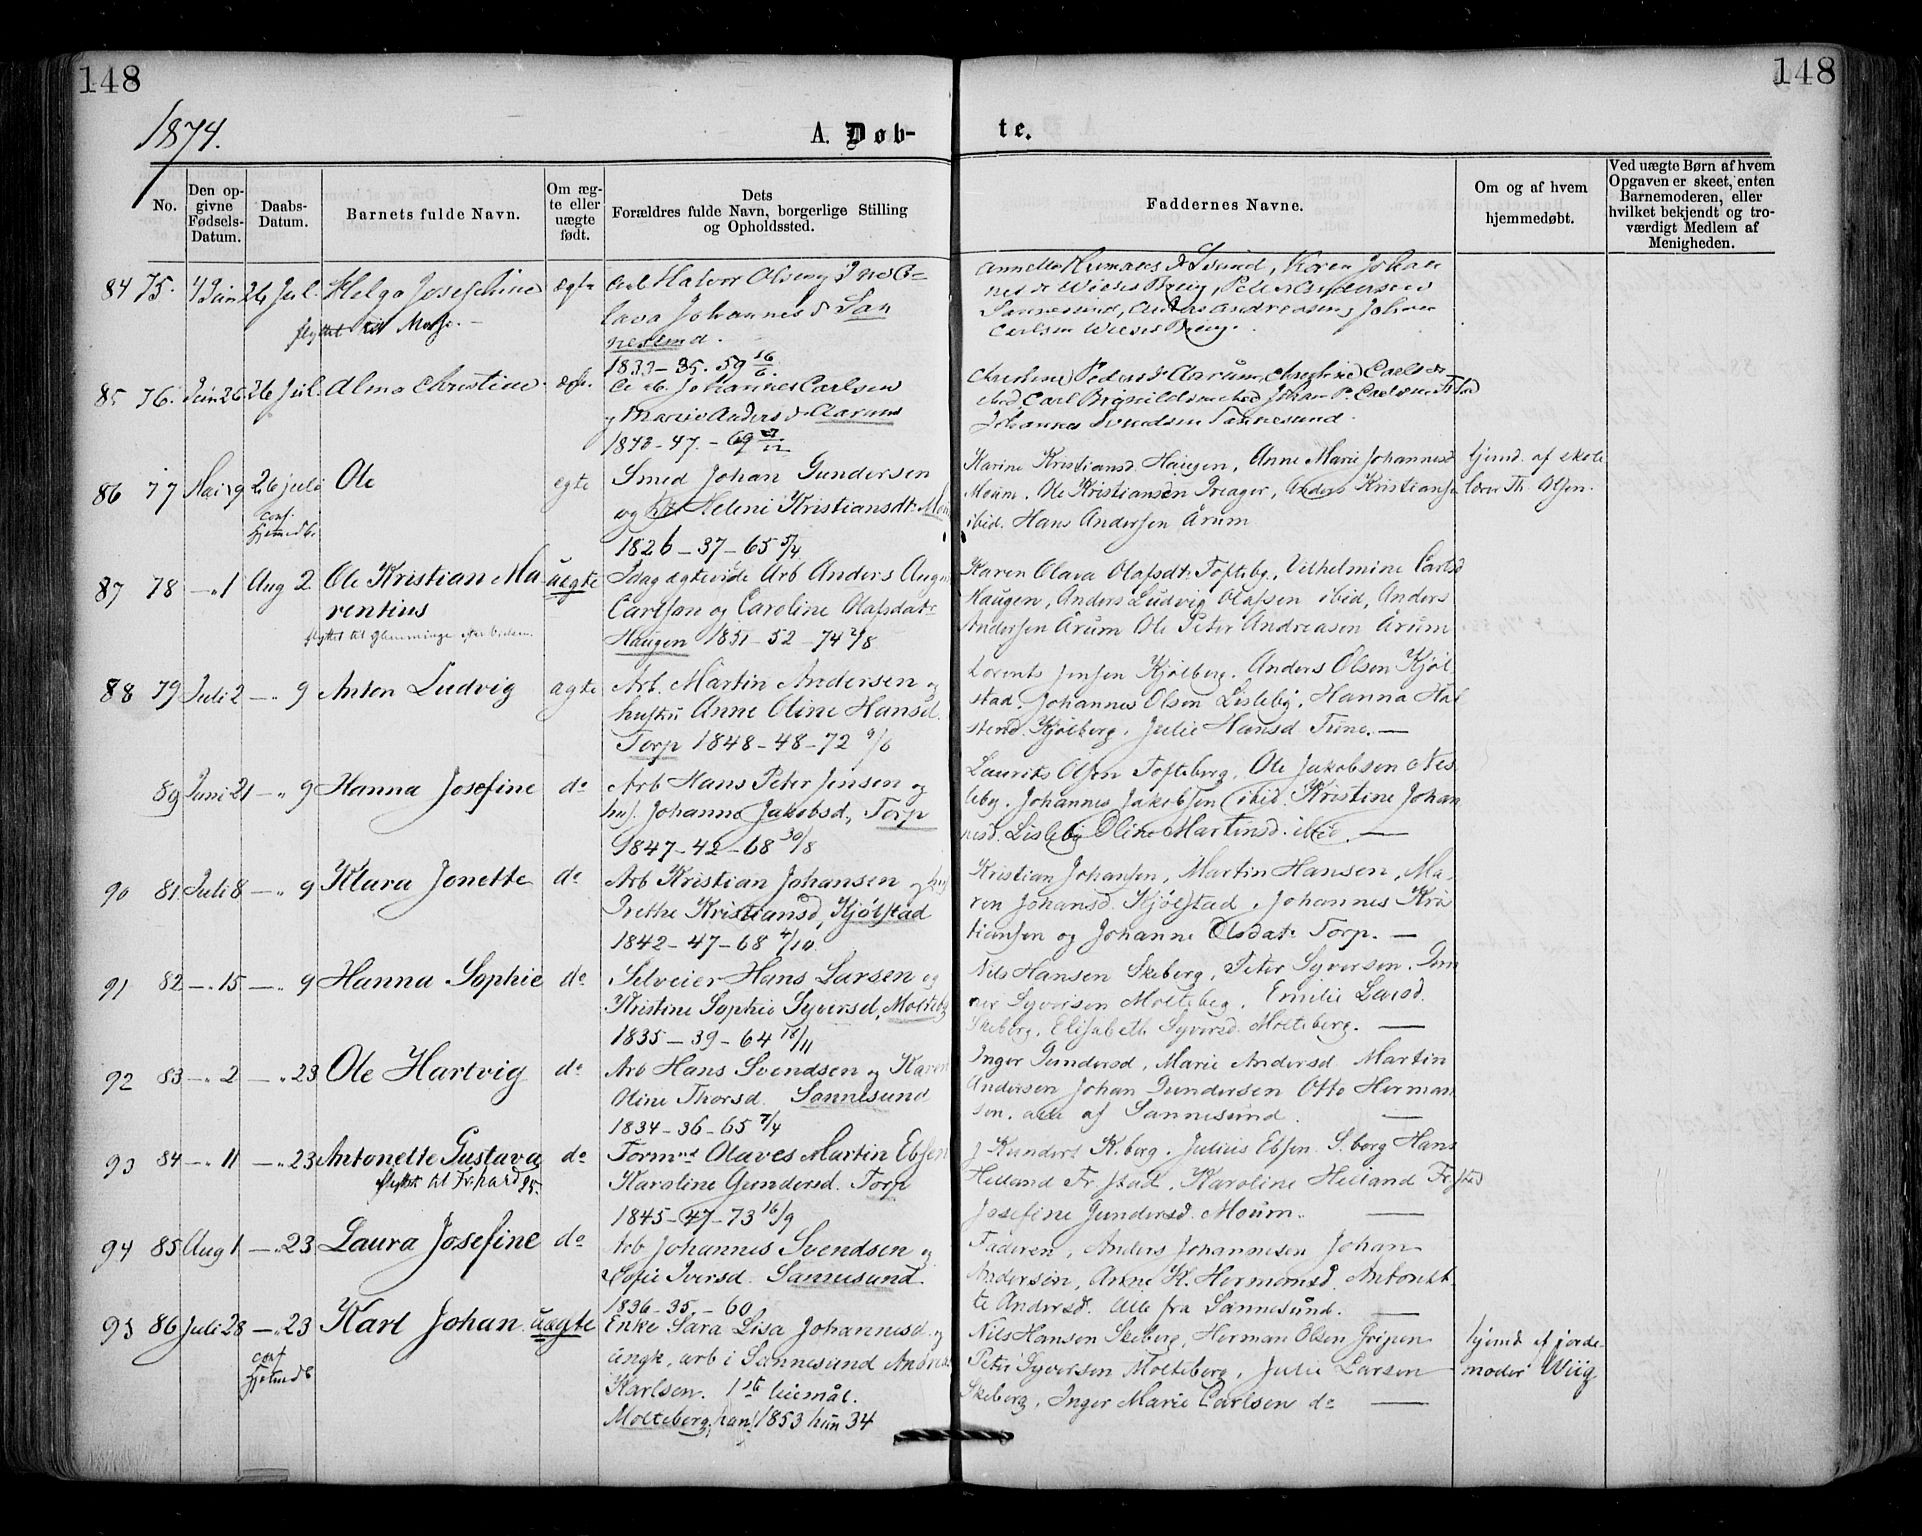 148
148
1874.
A. Døb-
te.
No.
Den op-
givne
Fødsels-
Datum.
Daabs-
Datum.
Barnets fulde Navn.
Om æg-
te eller
uægte
født.
Dets
Forældres fulde Navn, borgerlige Stilling
og Opholdssted.
Faddernes Navne.
Om og af hvem
hjemmedøbt.
Ved uægte Børn af hvem
Opgaven er skeet, enten
Barnemoderen, eller
hvilket bekjendt og tro-
værdigt Medlem af
Menigheden.
84 75. 4 Juni 26 Jul. Helga Josephine ægte
flyttet til Moss. -
Halvor Olsen
lava Johannes d San
nesund.
1833 - 35. 59 16/6.
Johan
nes d
Sannesund, Anders Andreasen, Johan
Carlsen
85 76. Juni 26. 26 Jul. Alma Christine. ægt.
Johannes Carlsen
Marie Anders d. Aarum
1843 - 47. - 69
Peders d Aarum, Christine Carls d
Carl Johan P. Carlsen
Johannes Svendsen Sannesund.
86 77 Mai 9 26 juli Ole egte
conf.
hjemmedb.
Smed Johan Gundersen
og Helene Kristiansdt.
1826 - 37 - 65 5/4
Karine Kristiansd. Haugen, Anne Marie Johannesd
Moum. Ole Kristiansen Preager, Anders Kristiansen
ibid. Hans Andersen Årum
hjemd. af skole
lærer Th. Olsen.
87 78 -"- 1 Aug 2 Ole Kristian Ma-
rentius
uægte
flyttet til Glemminge
Idag ægteviede Arb Anders August
Carlsen og Caroline Olafsdatr
Haugen 1851 - 52 - 74 2/8
Karen Olava Olafsdt. Tofteby, Vilhelmine Carlsd
Haugen, Anders Ludvig Olafsen ibid, Anders
Andersen Årum Ole Peter Andreasen Årum
88 79 Juli 2 -"- 9 Anton Ludvig ægte
Arb. Martin Andersen og
hustru Anne Oline Hansd.
Torp 1848 - 48 - 72 9/6
Lorents Jensen Kjølberg. Anders Olsen Kjøl
stad. Johannes Olsen Lisleby. Hanna Hal
stensd. Kjølberg. Julie Hansd Tune. —
89 Juni 21 -"- 9 Hanna Josefine do
Arb Hans Peter Jensen og
hus. Johanne Jakobsd, Torp
1847 - 42 - 68 30/8
Laurits Olsen Tofteberg. Ole Jakobsen
leby. Johannes Jakobsen ibid. Kristine Johan
nesd. Lisleby Oline Martinsd. ibid. —
90 81 Juli 8 -"- 9 Klara Jonette do
Arb Kristian Johansen og hus
Grethe Kristiansd, Kjølstad
1842 - 47 - 68 4/10
Kristian Johansen, Martin Hansen, Ma-
ren Johansd. Kjølstad, Johannes Kris
tiansen og Johanne Olsdatr Torp. —
91 82 -"- 15 -"- 9 Hanna Sophie do
Selveier Hans Larsen og
Kristine Sophie Syversd, Molteberg
1835 - 39 - 64 18/11
Nils Hansen Skeberg, Peter Syversen,
Syversen Molteberg. Emilie Larsd.
Skeberg, Elisabeth Syversd. Molteberg. —
92 83 -"- 2 -"- 23 Ole Hartvig do
Arb Hans Svendsen og Karen
Oline Thorsd. Sannesund
1834 - 36 - 65 7/4
Inger Gundersd, Marie Andersd Martin
Andersen Johan Gundersen Otto Herman
sen. alle af Sannesund. —
93 84 -"- 11 -"- 23 Antonette Gustava do
flyttet til Fr.hald 95.
Formnd Olaves Martin Ebsen
Karoline Gundersd. Torp
1845 - 47 - 73 16/9
Kundert K.berg. Julius Ebsen. S.borg Hans
Heiland Fr.stad. Karoline Heiland Fr.stad
Josefine Gundersd. Moum. —
94 85 Aug 1 -"- 23 Laura Josefine do
Arb Johannes Svendsen og
Sofie Iversd. Sannesund.
1836 - 35. - 60
Faderen, Anders Johannesen Johan
Andersen, Anne H. Hermansd. Antonet
te Andersd. Alle fra Sannesund. —
95 86 Juli 28 -"- 23 Karl Johan uægte
conf
hjemdb
Enke Sara Lisa Johannesd og
ungk, arb i Sannesund Andreas
Karlsen. 1ste leiemål.
Molteberg, han 1853 hun 34
Nils Hansen Skeberg, Herman Olsen Gripen
Peter Syversen Molteberg, Julie Larsen
Skeberg, Inger Marie Carlsen do —
hjemd af jorde-
moder Wiig